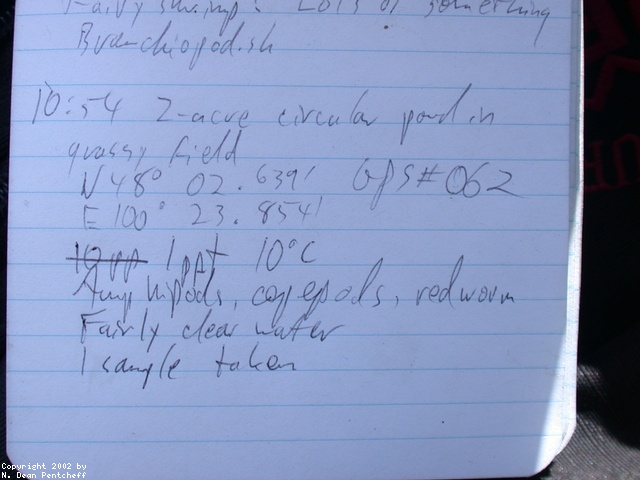 Fairy shrimp? Lots of something
Branchiopodish
10:54 2-acre circular pond in
grassy field
N 48° 02.639' GPS#062
E 100° 23.854'
10 pp 1 ppt 10°C
Amphipods, copepods, redworm
Fairly clear water
1 sample taken
Copyright 2002 by
N. Dean Pentcheff